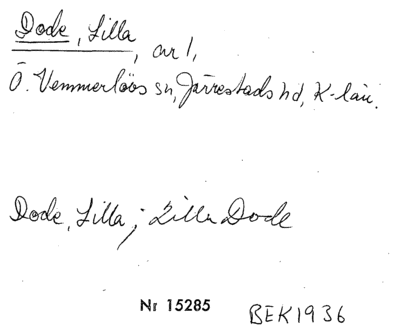 Dode, Lilla, avl,
Ö. Vemmerlövs sn, Järrestads hd, K-län.
Dode, Lilla; Lilla Dode
Nr 15285 BEK1936